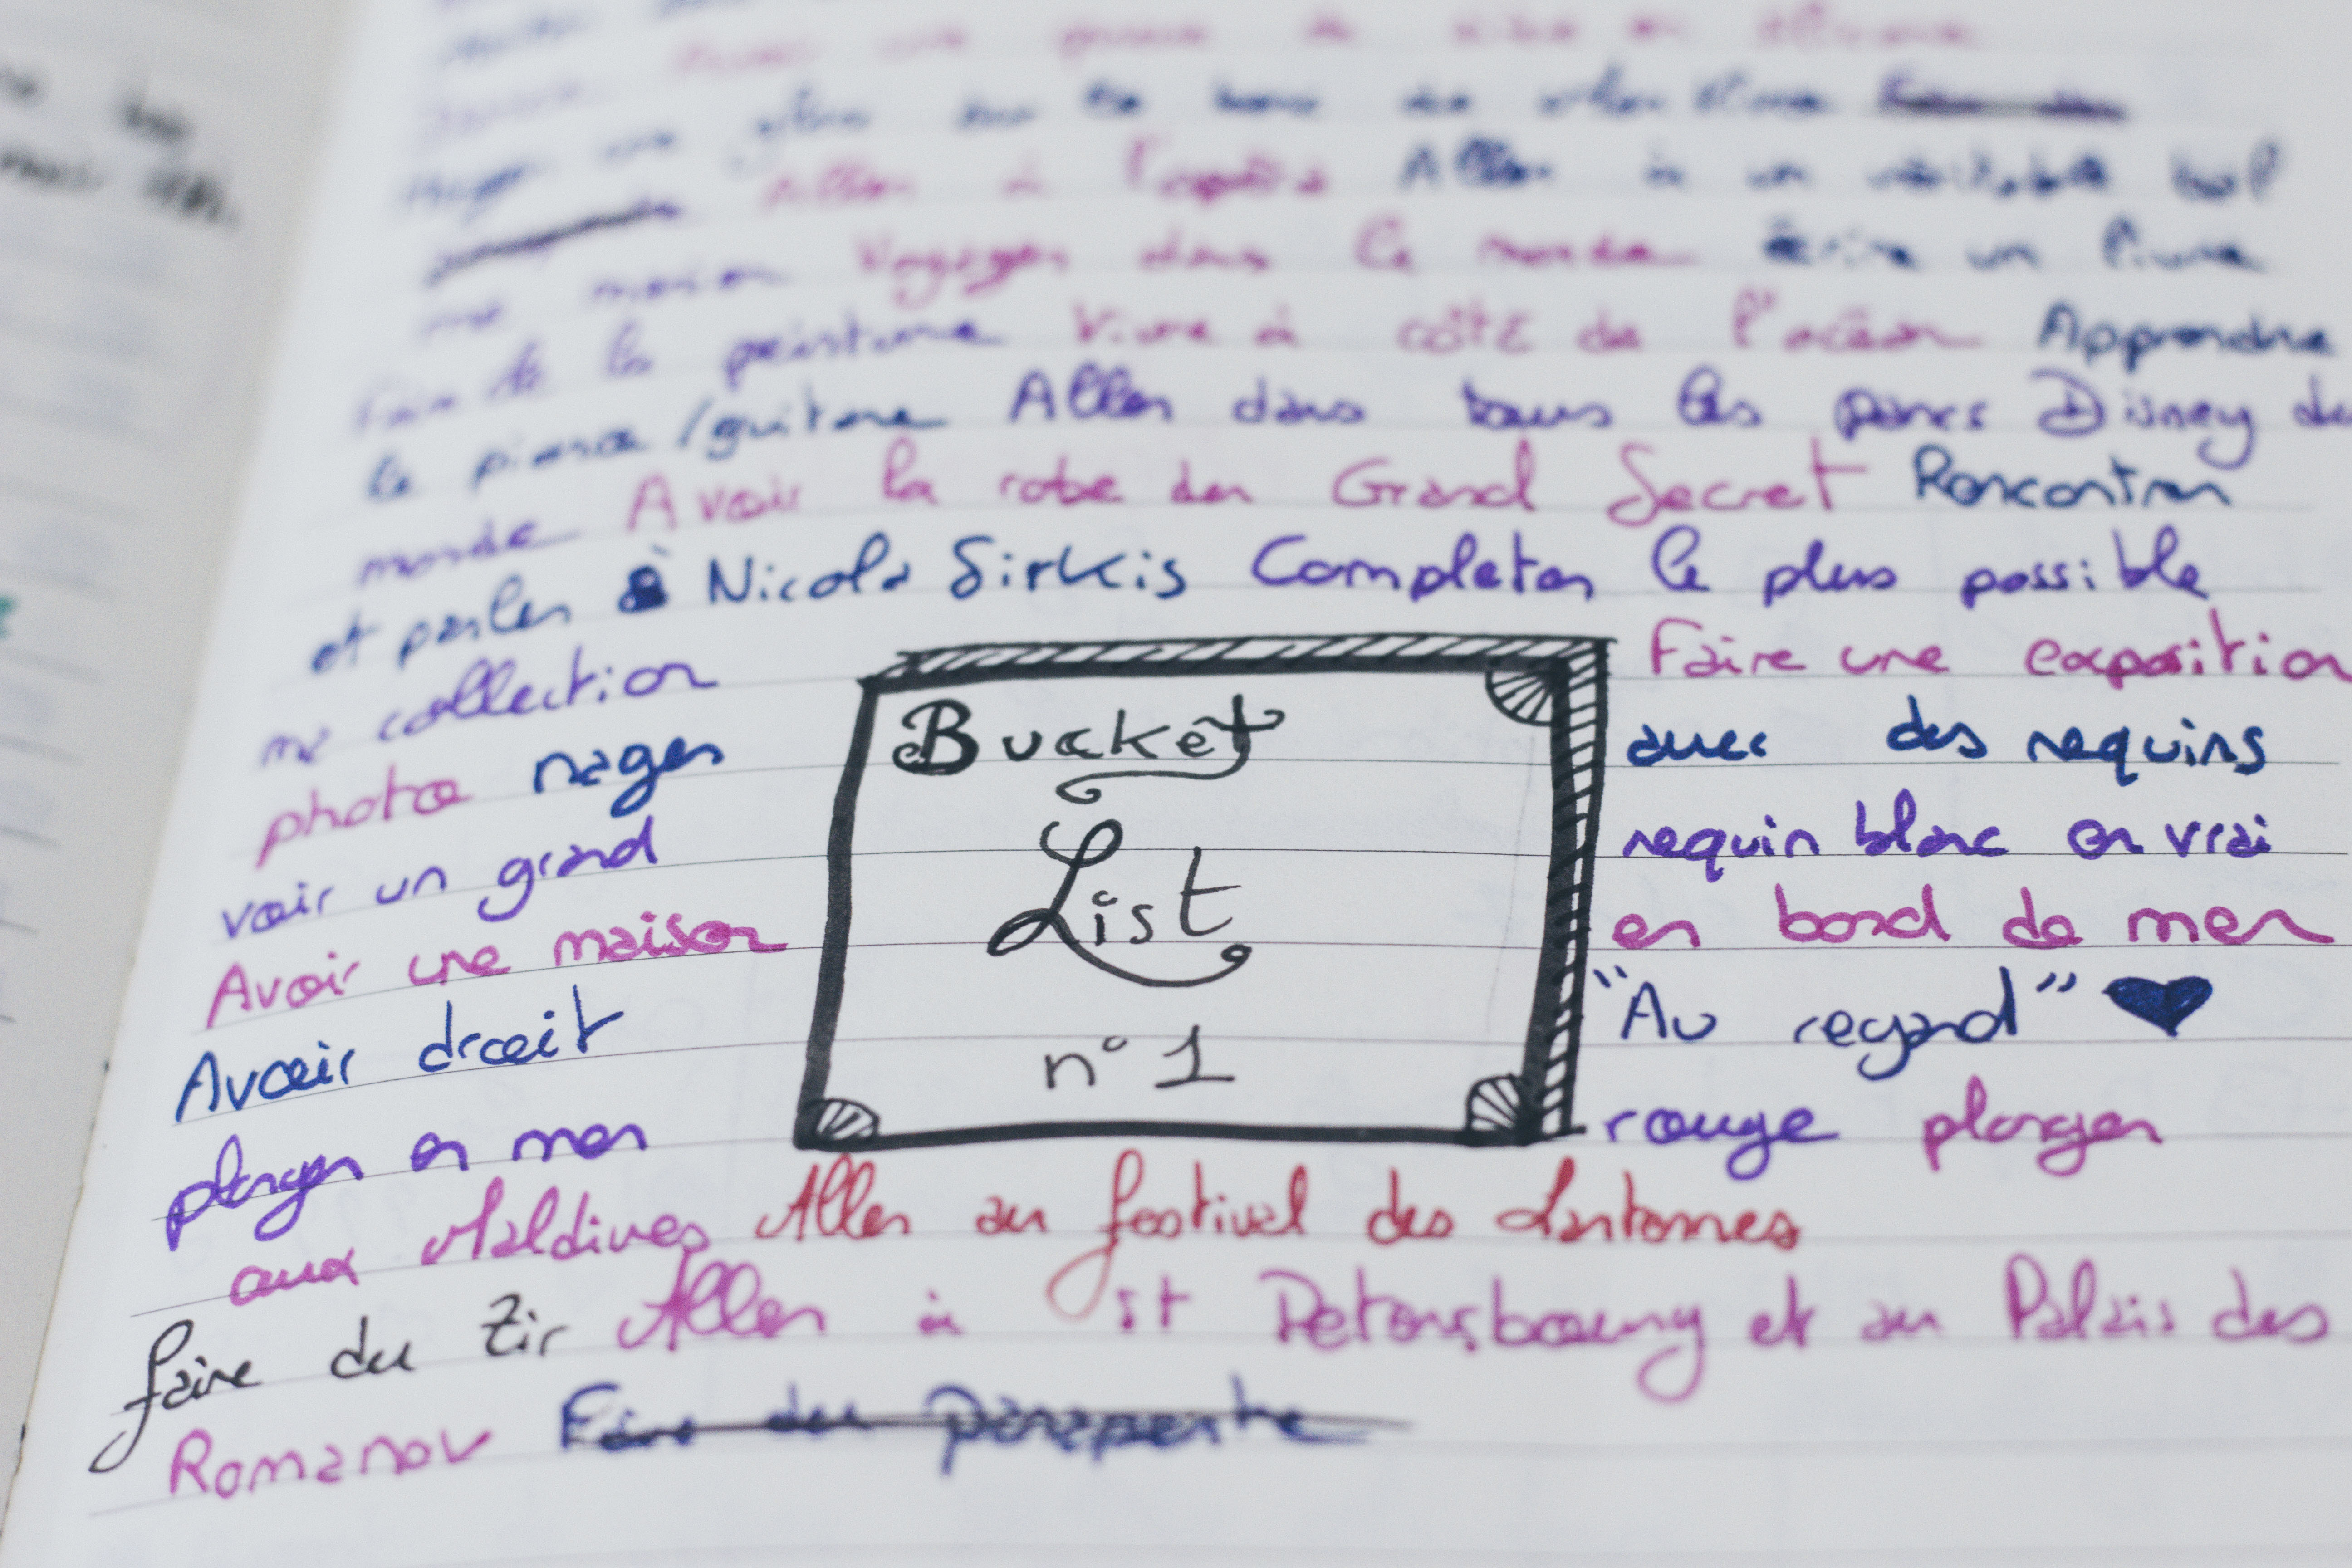 Aller à l'opéra Aller à un véritable bal
Voyager dans le monde écrire un livre
Faire de la peinture Vivre à côté de l'océan Apprendre
le piano/guitare Aller dans tous les parcs Disney du
monde Avoir la robe du Grand Secret Rencontrer
et parler à Nicola Sirkis Completer le plus possible
ma collection Faire une exposition
photo nager avec des requins
voir un grand requin blanc en vrai
Avoir une maison en bord de mer
Avoir droit "Au regard" ♥
plonger en mer rouge plonger
Bucket
List
n° 1
aux Maldives Aller au festival des Lanternes
faire du Tir Aller à St Petersbourg et au Palais des
Romanov Faire du parapente